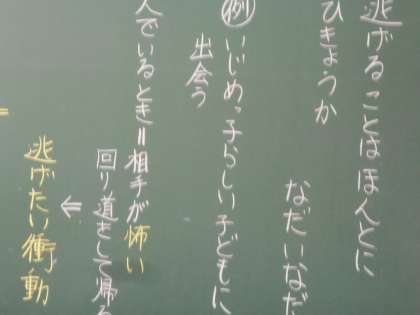 逃げることはほんとに
ひきょうか
なだいなだ
例 いじめっ子らしい子どもに
出会う
んでいるとき＝相手が怖い
回り道をして帰る
⇐
逃げたい衝動
=